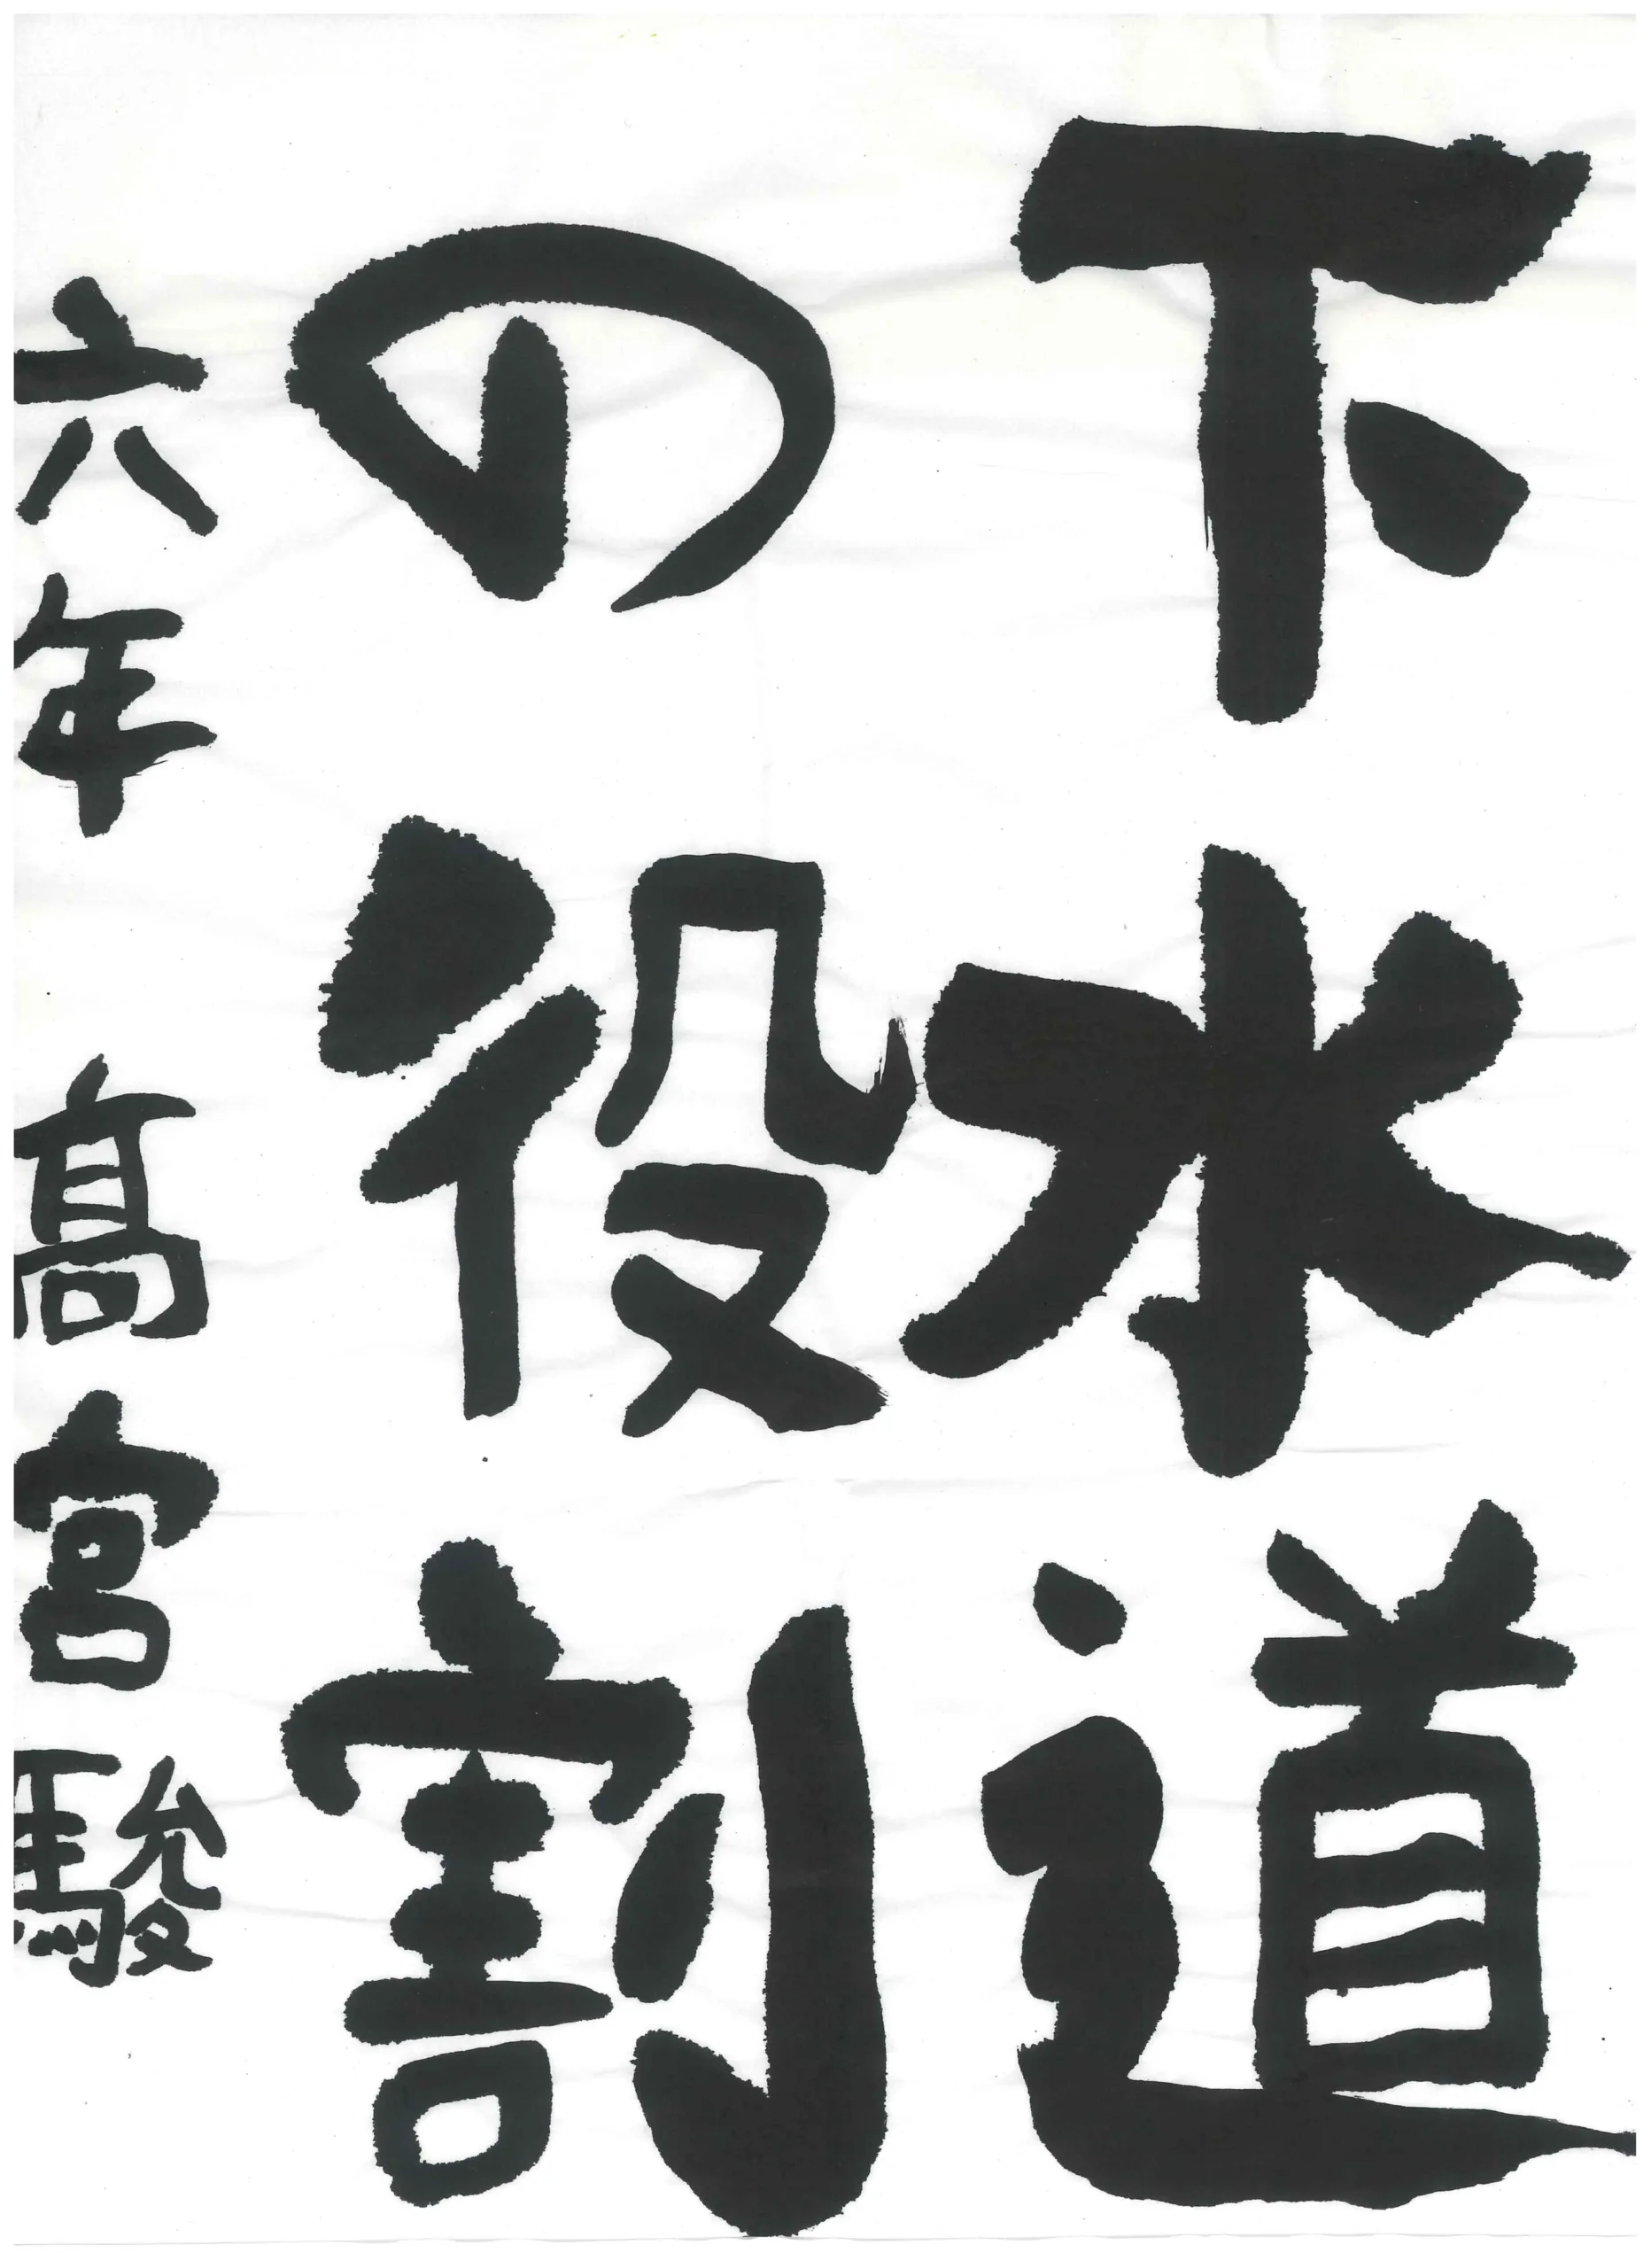 下水道
の役割
六年 髙宮駿